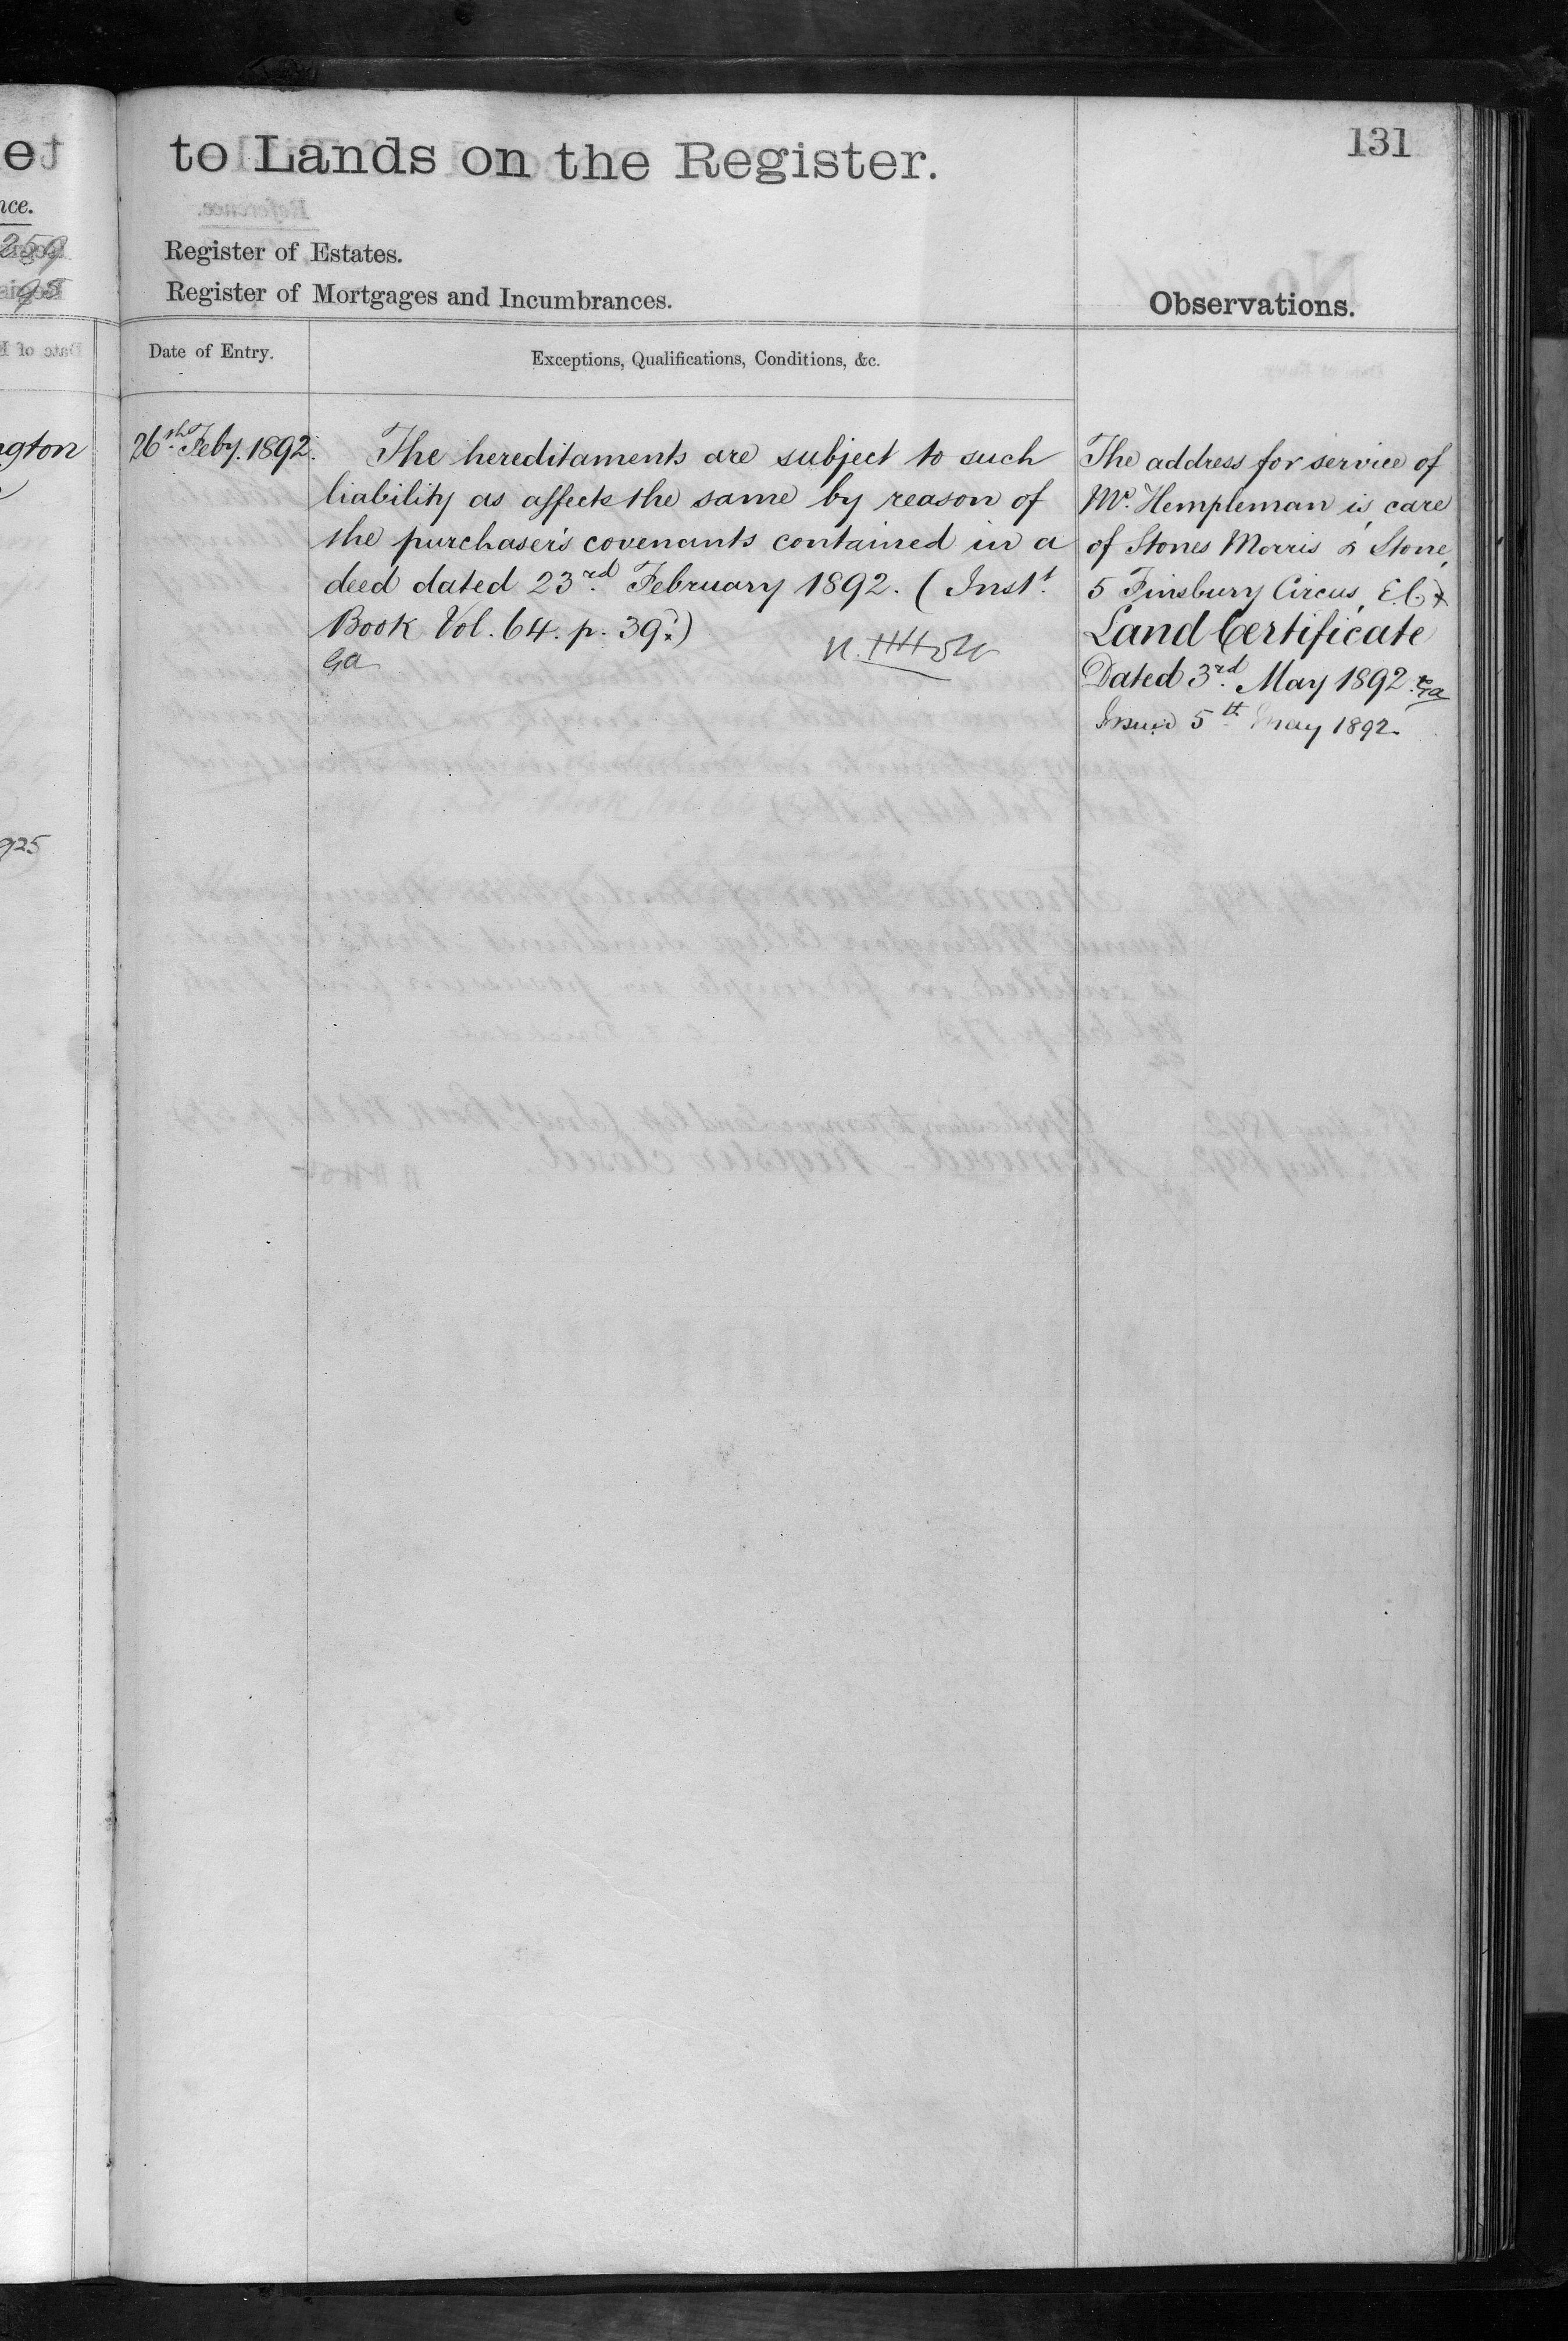 to Lands on the Register.
131
Register of Estates.
Register of Mortgages and Incumbrances.
Observations.
Date of Entry.
Exceptions, Qualifications, Conditions, &c.
26th Feby. 1892.
The hereditaments are subject to such
liability as affects the same by reason of
the purchaser's covenants contained in a
deed dated 23rd February 1892. (Inst.
Book Vol. 64. p. 39.)
Ga
The address for service of
Mr. Hempleman is care
of Stones Morris & Stone,
5 Finsbury Circus, E.C.
Land Certificate
Dated 3rd May 1892. Ga
Issued 5th May 1892.
nce.
259
95
gton
925